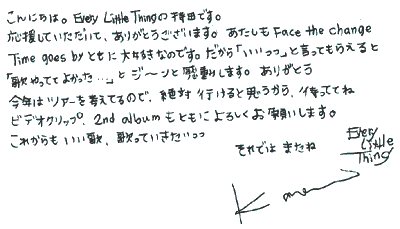 こんにちは。Every Little Thingの持田です。
応援していただいて、ありがとうございます。あたしもFace the change
Time goes byともに大好きなのです。だから「いいっっ」と言ってもらえると
「歌やっててよかった…」とジ〜ンと感動します。ありがとう
今年はツアーを考えてるので、絶対行けると思うから、待っててね
ビデオクリップ、2nd albumもともによろしくお願いします。
これからもいい歌、歌っていきたいっっ
それでは またね
Every
Little
Thing